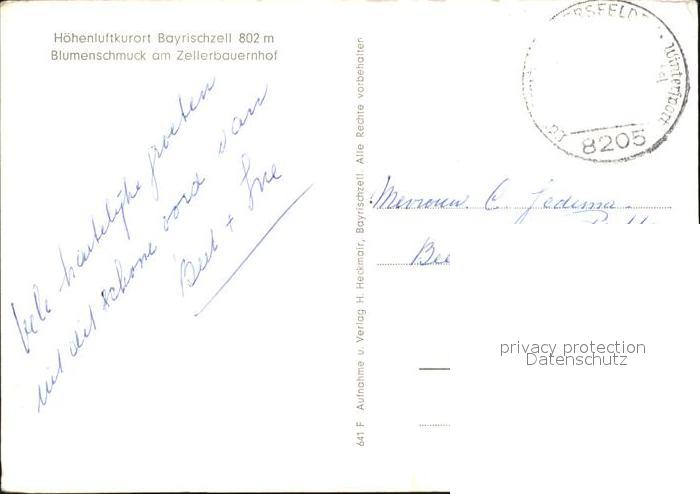 Höhenluftkurort Bayrischzell 802 m
Blumenschmuck am Zellerbauernhof
Vele hartelijke groeten
uit dit schone oord van
Bert + Ine
641 F Aufnahme u. Verlag H. Heckmair, Bayrischzell. Alle Rechte vorbehalten
Winterſport
8205
Mevrouw C. Jedema
Bee
privacy protection
Datenschutz